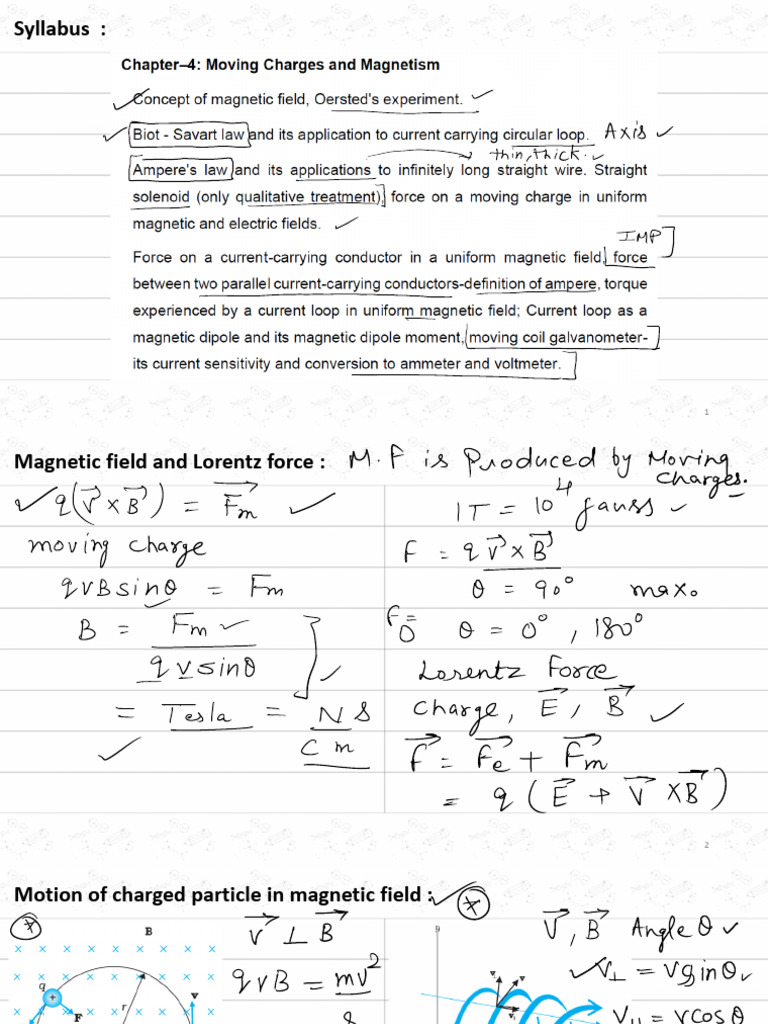 Syllabus :
Chapter–4: Moving Charges and Magnetism
Concept of magnetic field, Oersted's experiment.
Biot - Savart law and its application to current carrying circular loop. Axis
thin, thick.
Ampere's law and its applications to infinitely long straight wire. Straight
solenoid (only qualitative treatment), force on a moving charge in uniform
magnetic and electric fields.
IMP
Force on a current-carrying conductor in a uniform magnetic field, force
between two parallel current-carrying conductors-definition of ampere, torque
experienced by a current loop in uniform magnetic field; Current loop as a
magnetic dipole and its magnetic dipole moment, moving coil galvanometer-
its current sensitivity and conversion to ammeter and voltmeter.
1
Magnetic field and Lorentz force : M.F is Produced by Moving
charges.
q(V⃗ × B⃗) = F⃗m
moving charge
qvBsinθ = Fm
B = Fm / qvsinθ
= Tesla = NS / Cm
1T = 10⁴ gauss
F = qV⃗ × B⃗
θ = 90° max.
F = 0 θ = 0°, 180°
Lorentz Force
charge, E⃗, B⃗
F⃗ = F⃗e + F⃗m
= q(E⃗ + V⃗ × B⃗)
2
Motion of charged particle in magnetic field :
B
q
F
r
v
V⃗ ⊥ B⃗
qvB = mv²
B
V⃗, B⃗ Angle θ
V⊥ = Vsinθ
V|| = Vcosθ